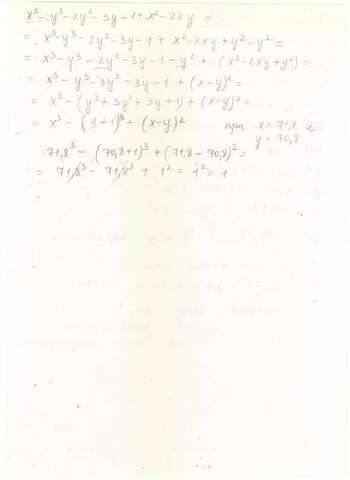 x³ - y³ - 2y² - 3y - 1 + x² - 2xy =
= x³ - y³ - 2y² - 3y - 1 + x² - 2xy + y² - y² =
= x³ - y³ - 2y² - 3y - 1 - y² + (x² - 2xy + y²) =
= x³ - y³ - 3y² - 3y - 1 + (x - y)² =
= x³ - (y³ + 3y² + 3y + 1) + (x - y)² =
= x³ - (y + 1)³ + (x - y)² при x = 71,8 и
y = 70,8
71,8³ - (70,8 + 1)³ + (71,8 - 70,8)² =
= 71,8³ - 71,8³ + 1² = 1² = 1